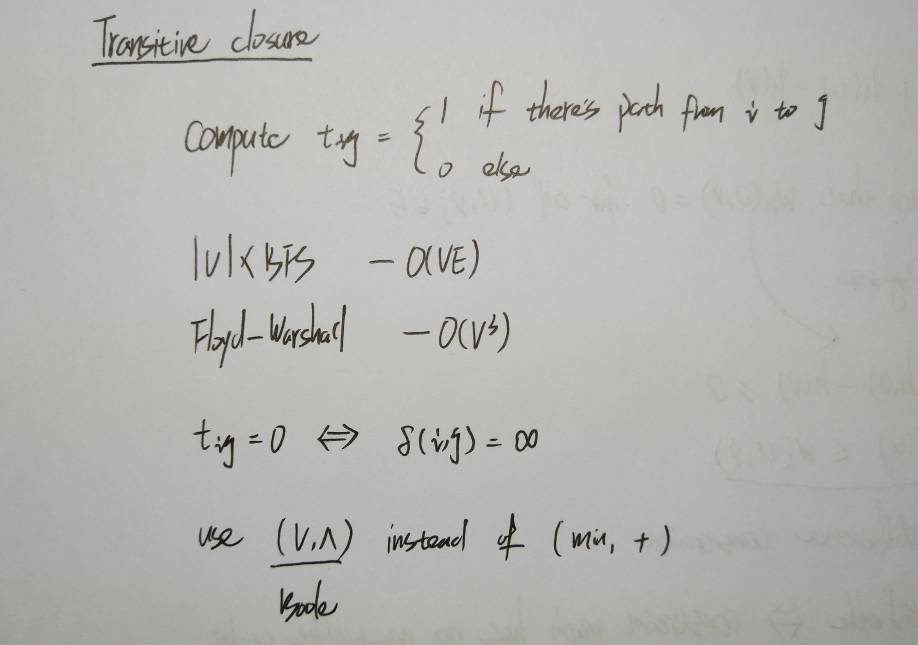 Transitive closure
Compute tij = { 1 if there's path from i to j
0 else
|V| × BFS — O(VE)
Floyd-Warshall — O(V³)
tij = 0 ⇔ δ(i,j) = ∞
use (∨,∧) instead of (min, +)
Boole